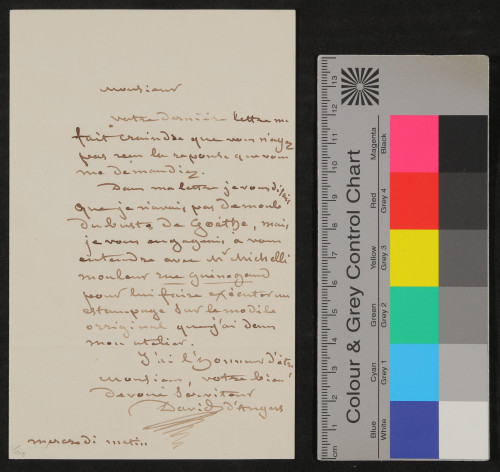 Monsieur
votre dernière lettre me
fait craindre que vous n'ayez
pas reçu la reponse que vous
me demandiez.
Dans ma lettre je vous disais
que je n'avais pas de moule
du buste de Goéthe, mais
je vous engageais a vous
entendre avec Mr Michelli
mouleur rue guénégaud
pour lui faire exécuter un
estampage sur le modèle
original que j'ai dans
mon atelier.
J'ai l'honneur d'être
Monsieur, votre bien
devoué Serviteur
David d'Angers
mercredi matin
Colour & Grey Control Chart
Blue Cyan Green Yellow Red Magenta
White Grey 1 Grey 2 Grey 3 Grey 4 Black
cm 1 2 3 4 5 6 7 8 9 10 11 12 13